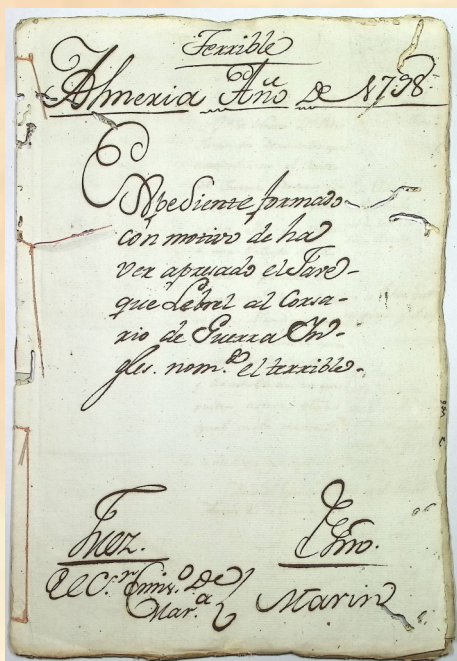 Terrible
Almeria Año de 1798
Expediente formado
con motivo de ha
ver apresado el Jave-
que Lebrel al Corsa-
rio de Guerra In-
gles. nom.do el terrible.
Juez.
El Sr. Mnis.o de
Mar.a
Esno.
Marin